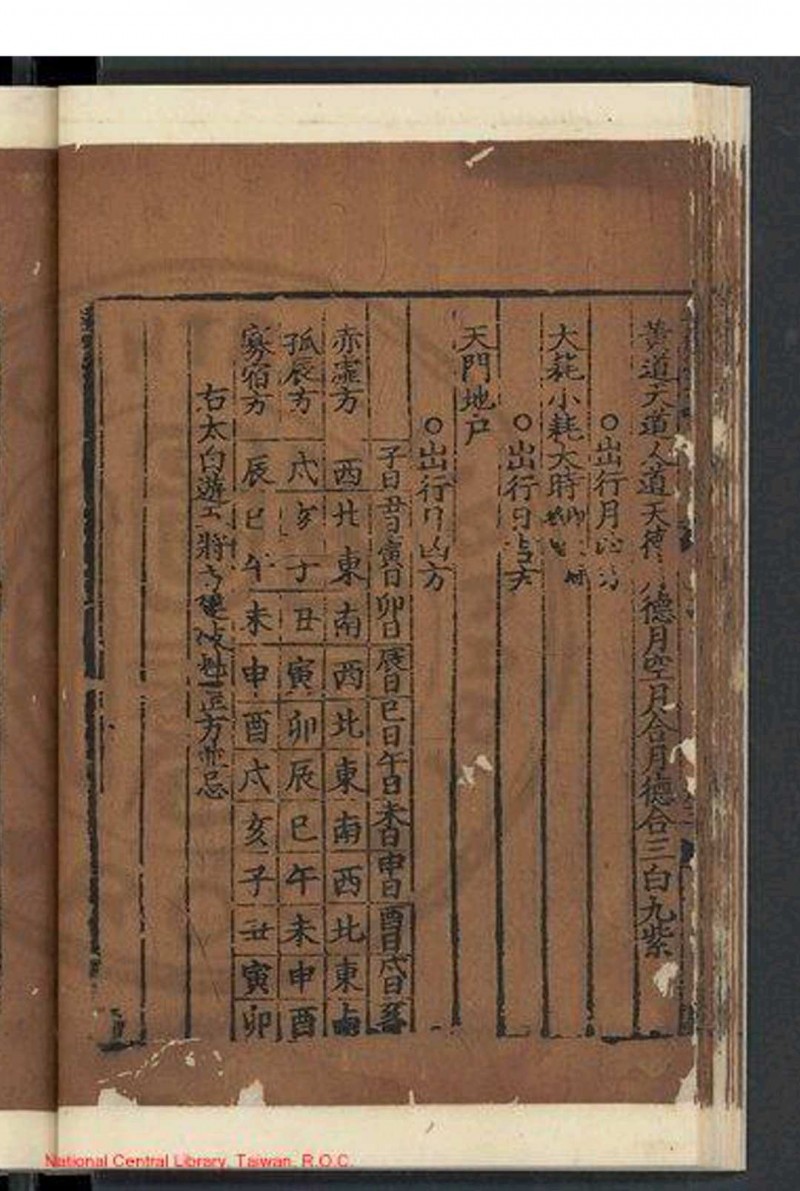 黃道天道人道天德 德月空月合月德合三白九紫
○出行月
大耗小耗大時
○出行日吉方
天門地戶
○出行日凶方
子日丑日寅日卯日辰日巳日午日未日申日酉日戌日亥日
赤虛方 西北東南西北東南西北東南
孤辰方 戌亥子丑寅卯辰巳午未申酉
寡宿方 辰巳午未申酉戌亥子丑寅卯
右太白遊 將 正方並忌
National Central Library, Taiwan, R.O.C.